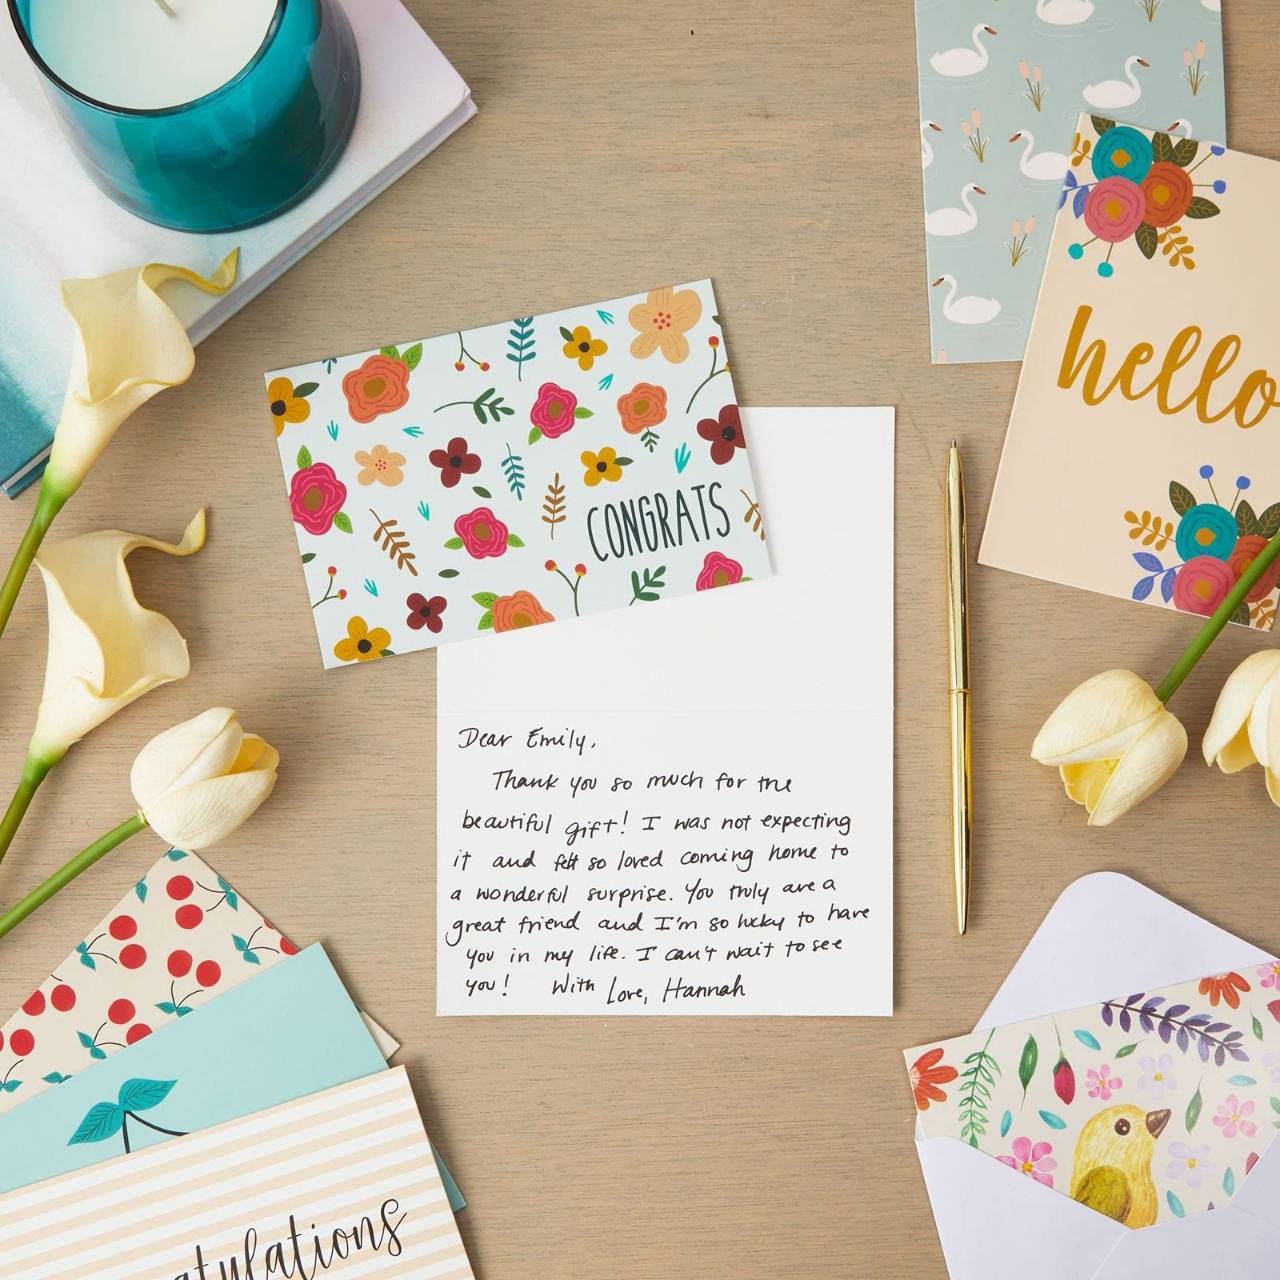 hello
CONGRATS
Dear Emily,
Thank you so much for the
beautiful gift! I was not expecting
it and felt so loved coming home to
a wonderful surprise. You truly are a
great friend and I'm so lucky to have
you in my life. I can't wait to see
you! With Love, Hannah
atulations